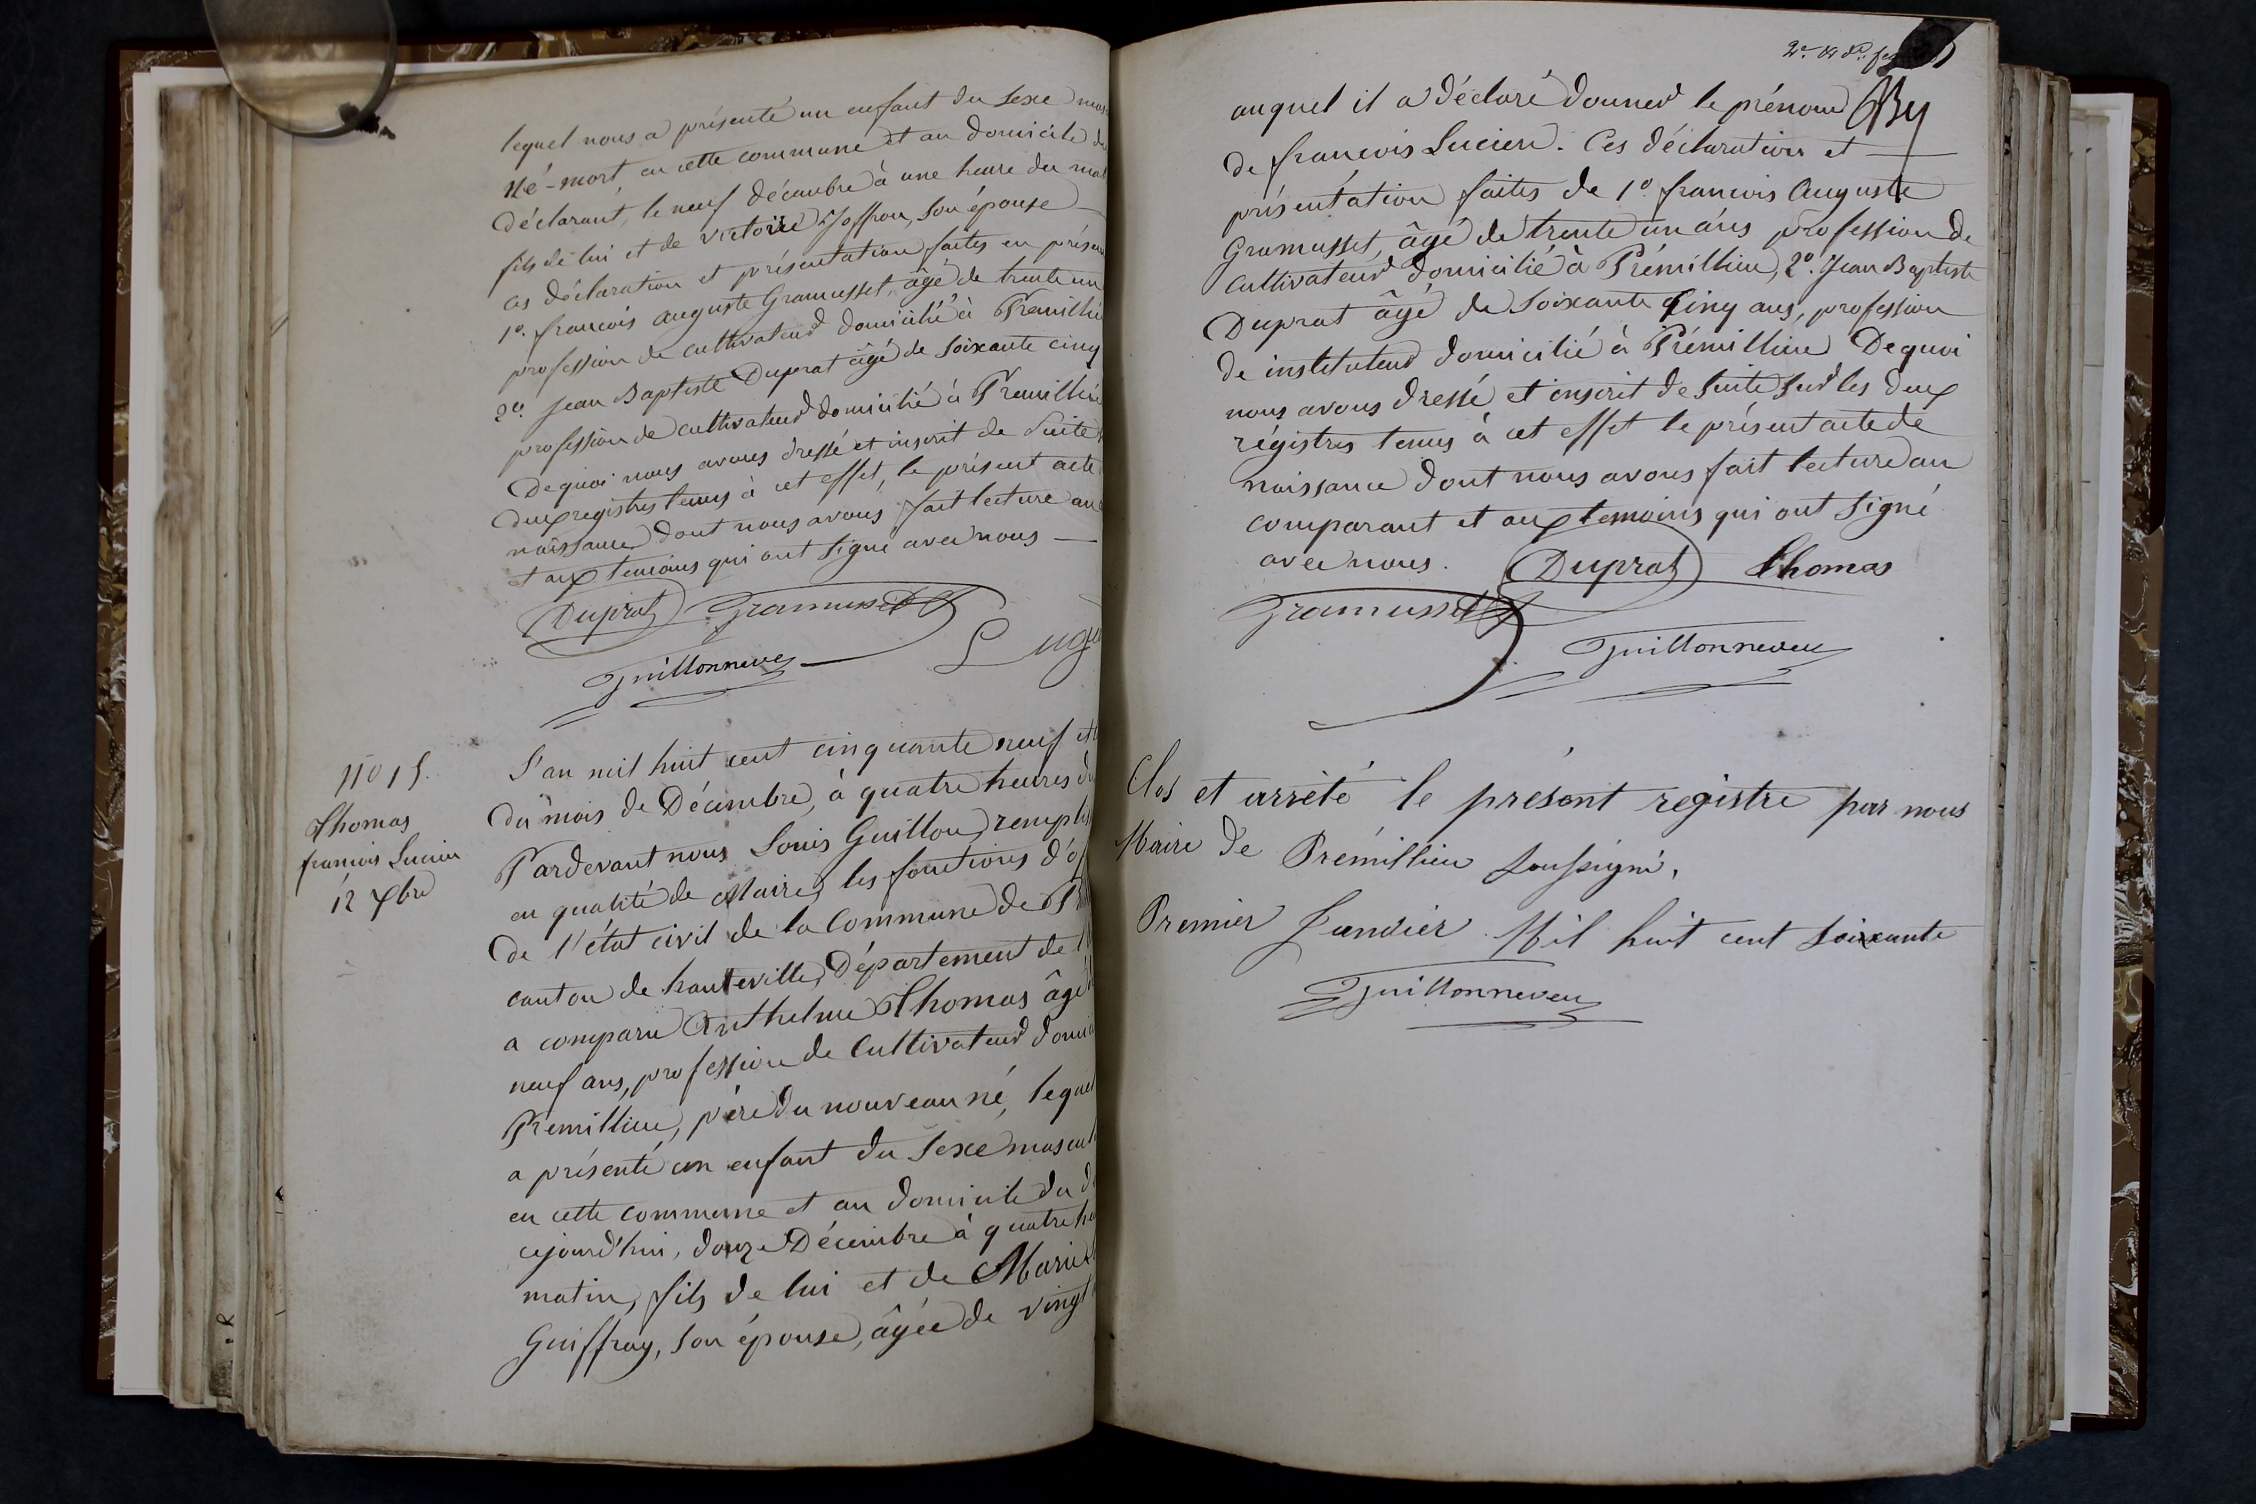 lequel nous a présenté un enfant du sexe mas
Né-mort en cette commune et au domicile du
déclarant, le neuf décembre à une heure du mat
fils de lui et de victoire Joffron, son épouse
ces déclaration et présentation faites en présen
1º. francois auguste Gramusset, âgé de trente un
profession de cultivateur domicilié à Premillie
2º. Jean Baptiste Duprat âgé de soixante cinq
profession de cultivateur domicilié à Premillie
De quoi nous avons dressé et inscrit de suite
deux registres tenus à cet effet, le présent acte
naissance dont nous avons fait lecture au
et aux temoins qui ont signé avec nous
Duprat Gramusset
Guillonneveu
Nº 15.
Thomas
francois Lucien
12 Xbre
L'an mil huit cent cinquante neuf et
du mois de Décembre, à quatre heures du
Pardevant nous Louis Guillon, remplis
en qualité de Maire, les fonctions d'of
de l'état civil de la Commune de Pr
canton de hauteville, Département de l'
a comparu Anthelme Thomas âgé
neuf ans, profession de Cultivateur domic
Premillieu, père du nouveau né, lequel
a présenté un enfant du sexe mascul
en cette commune et au domicile du d
cejourd'hui, douze Décembre à quatre he
matin, fils de lui et de Marie
Guiffray, son épouse, âgée de vingt
2e et
auquel il a déclaré donner le prénom
de francois Lucien. Ces déclaration et
présentation faites de 1º. francois Auguste
Gramusset, âgé de trente un ans profession de
Cultivateur domicilié à Prémillieu, 2º. Jean Baptiste
Duprat âgé de soixante Cinq ans, profession
de instituteur domicilié à Prémillieu De quoi
nous avons dressé et inscrit de suite sur les deux
régistres tenus à cet effet le présent acte de
naissance dont nous avons fait lecture au
comparant et aux temoins qui ont signé
avec nous. Duprat Thomas
Gramusset
Guillonneveu
Clos et arrêté le présent registre par nous
Maire de Prémillieu soussigné,
Premier Janvier Mil huit cent soixante
Guillonneveu